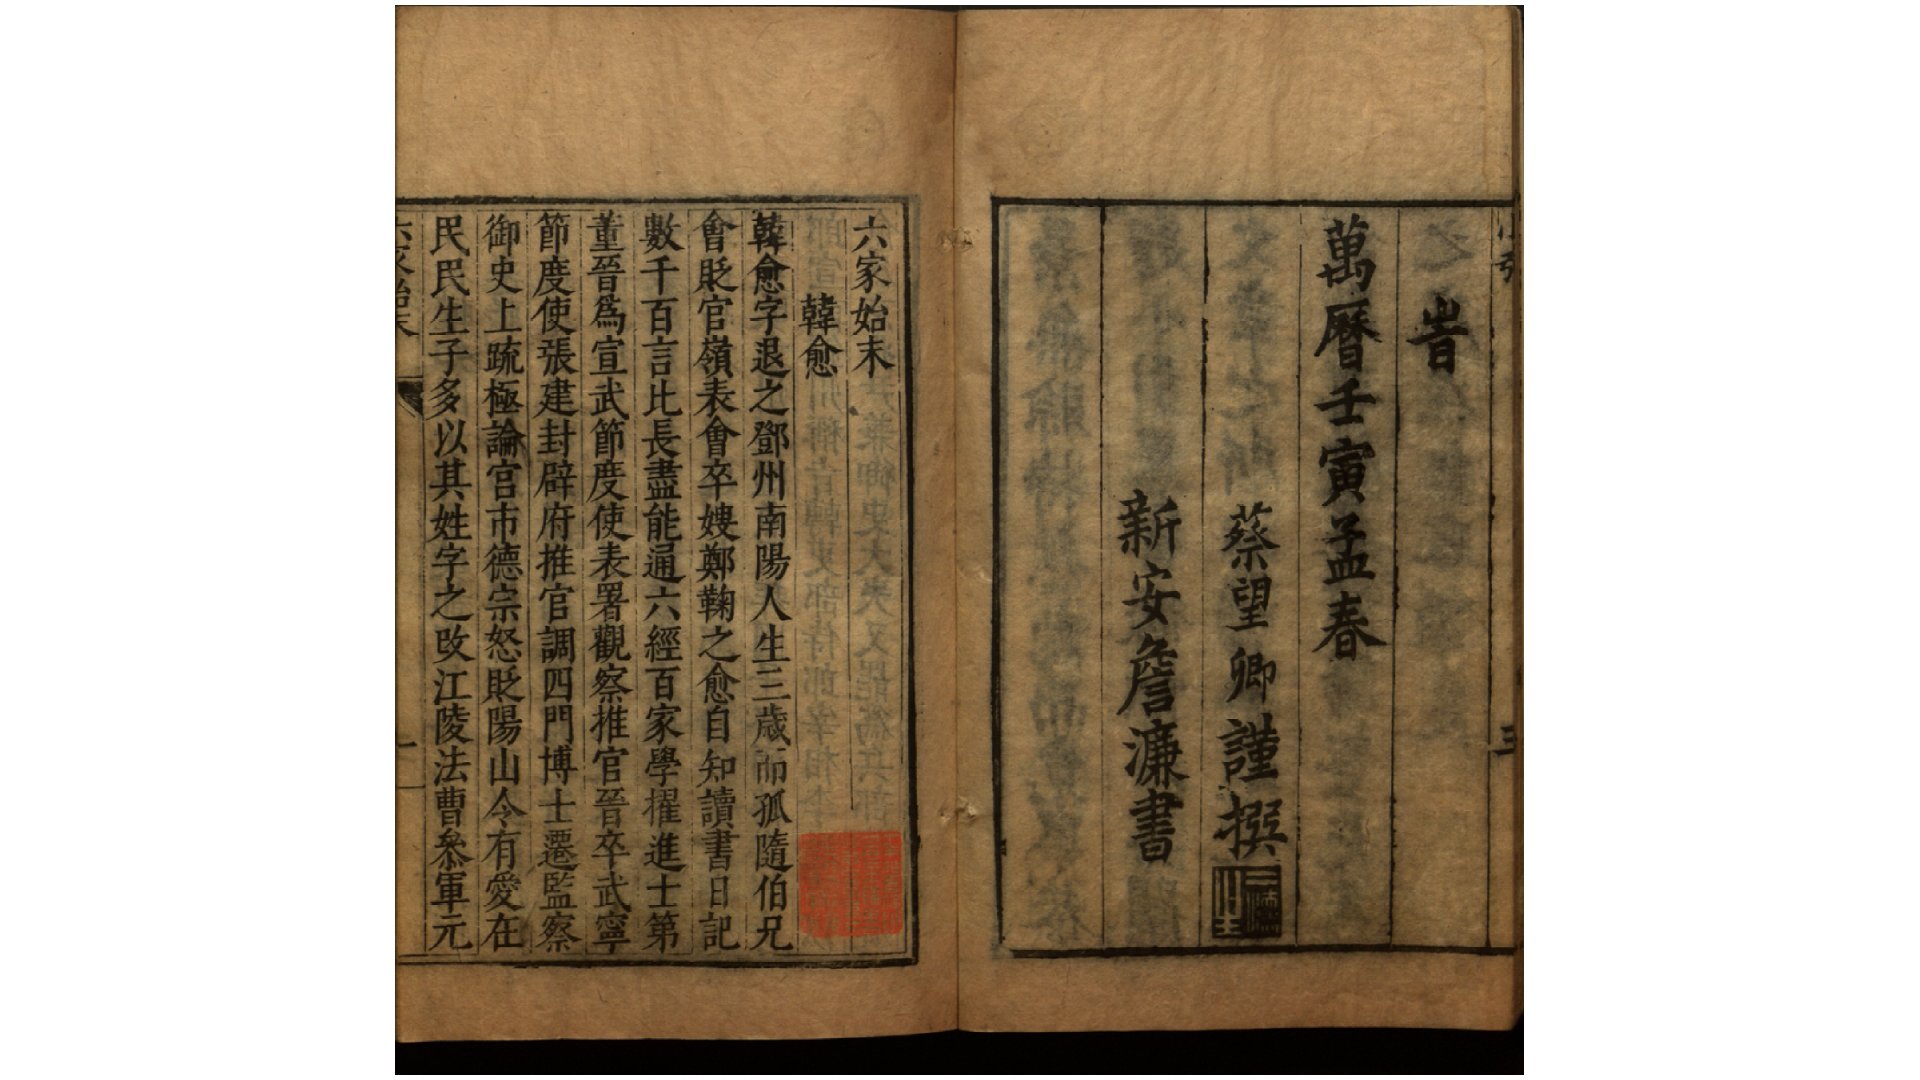 旹
萬曆壬寅孟春
蔡望卿謹撰
新安詹濂書
六家始末
韓愈
韓愈字退之鄧州南陽人生三歲而孤隨伯兄
會貶官嶺表會卒嫂鄭鞠之愈自知讀書日記
數千百言比長盡能通六經百家學擢進士第
董晉爲宣武節度使表署觀察推官晉卒武寧
節度使張建封辟府推官調四門博士遷監察
御史上疏極論宫市德宗怒貶陽山令有愛在
民民生子多以其姓字之改江陵法曹叅軍元
六家始末
一